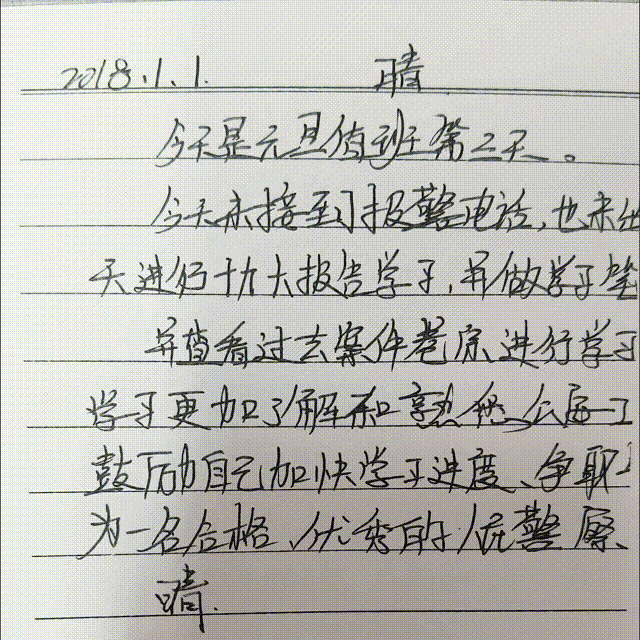 2018.1.1. 晴
今天是元旦值班第三天。
今天未接到报警电话,也未出
天进行十九大报告学习,并做学习笔
并查看过去案件卷宗进行学习
学习更加了解和熟悉公安工
鼓励自己加快学习进度、争取
为一名合格、优秀的人民警察
晴.